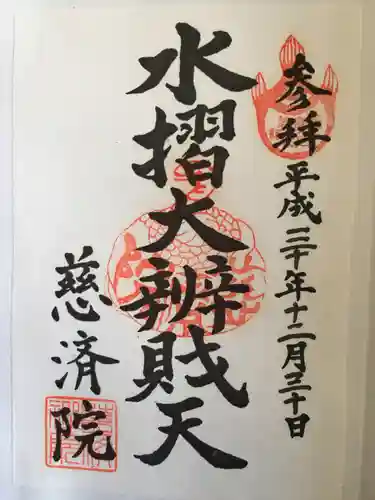 参拝
平成三十年十二月三十日
水摺大辨財天
慈済院